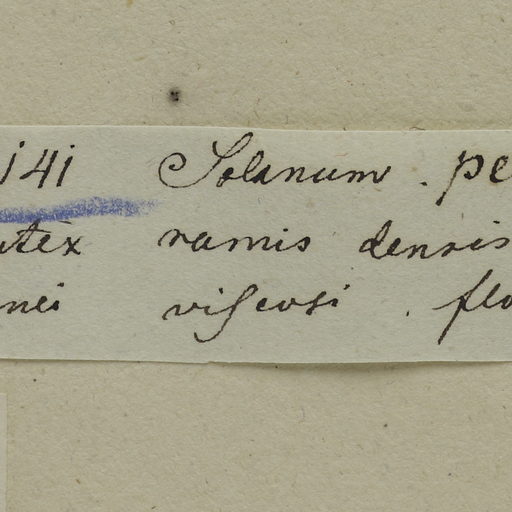 141 Solanum . pe
utex ramis densis
nei viscosi . flo